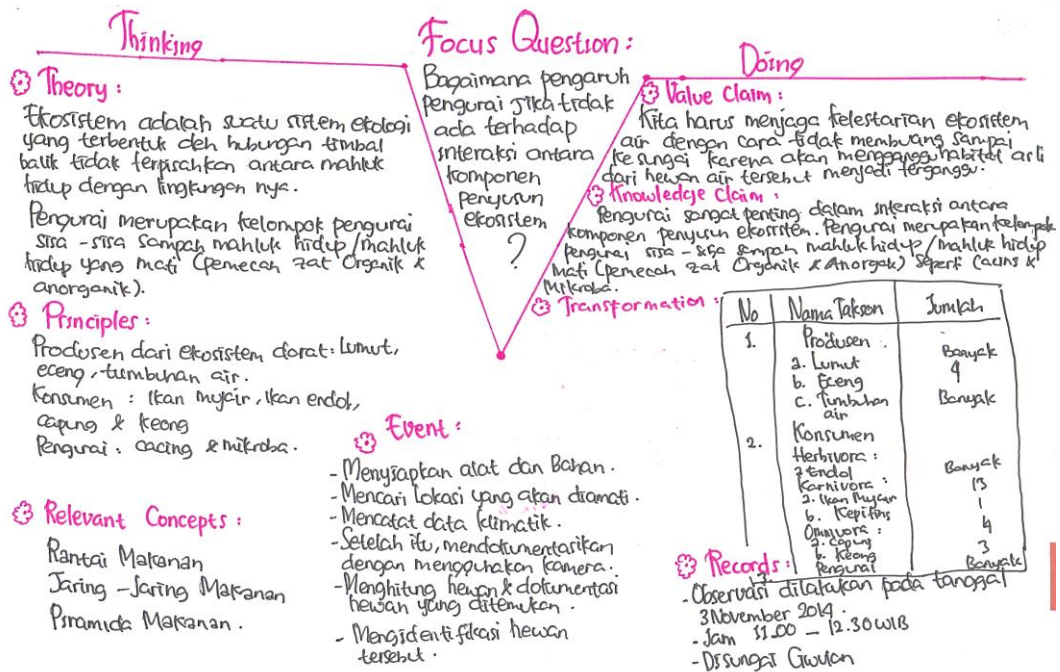 Thinking
Theory :
Ekosistem adalah suatu sistem ekologi
yang terbentuk oleh hubungan timbal
balik tidak terpisahkan antara mahluk
hidup dengan lingkungan nya.
Pengurai merupakan kelompok pengurai
sisa - sisa sampah mahluk hidup / mahluk
hidup yang mati (pemecah zat Organik &
anorganik).
Principles :
Produsen dari ekosistem darat : Lumut,
eceng, tumbuhan air.
Konsumen : Ikan mujair, Ikan endol,
capung & keong
Pengurai : cacing & mikroba.
Relevant Concepts :
Rantai Makanan
Jaring - Jaring Makanan
Piramida Makanan.
Focus Question :
Bagaimana pengaruh
pengurai jika tidak
ada terhadap
interaksi antara
komponen
penyusun
ekosistem
?
Event :
- Menyiapkan alat dan Bahan.
- Mencari Lokasi yang akan diamati.
- Mencatat data klimatik.
- Setelah itu, mendokumentasikan
dengan menggunakan kamera.
- Menghitung hewan & dokumentasi
hewan yang ditemukan.
- Mengidentifikasi hewan
tersebut.
Doing
Value Claim :
Kita harus menjaga kelestarian ekosistem
air dengan cara tidak membuang sampai
ke sungai karena akan mengganggu habitat asli
dari hewan air tersebut menjadi terganggu.
Knowledge Claim :
Pengurai sangat penting dalam interaksi antara
komponen penyusun ekosistem. Pengurai merupakan kelompok
pengurai sisa - sisa sampah mahluk hidup / mahluk hidup
mati (pemecah zat Organik & Anorgak) seperti cacing &
Mikroba.
Transformation :
No Nama Takson Jumlah
1. Produsen :
a. Lumut Banyak
b. Eceng 4
c. Tumbuhan Banyak
air
2. Konsumen
Herbivora :
Endol Banyak
Karnivora :
a. Ikan Mujair 13
b. Kepiting 1
Omnivora :
a. Capung 4
b. Keong 3
Pengurai Banyak
Records :
- Observasi dilakukan pada tanggal
3 November 2014.
- Jam 11.00 - 12.30 WIB
- Disungai Gwulan